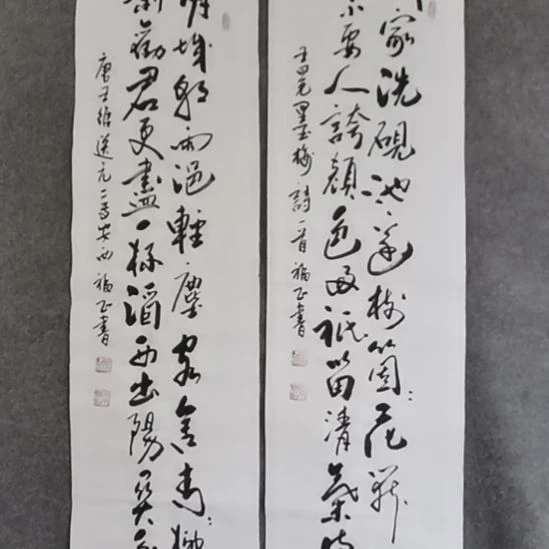 家洗硯池邊樹箇〻花開
不要人誇顏色好祇留清氣滿
王冕墨梅詩一首 福正書
城朝雨浥輕塵客舍青〻柳
勸君更盡一杯酒西出陽關無
唐王維送元二使安西 福正書